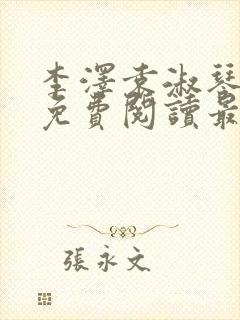 李澤袁淑琴
免費閱讀最
張永文